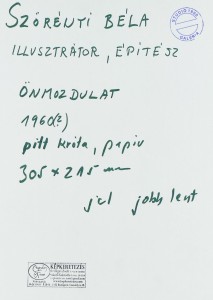 SZÖRÉNYI BÉLA
ILLUSZTRÁTOR, ÉPÍTÉSZ
ÖNMOZDULAT
1960(?)
pitt kréta, papír
305 x 215 mm
jel jobb lent
KÉPKERETEZÉS